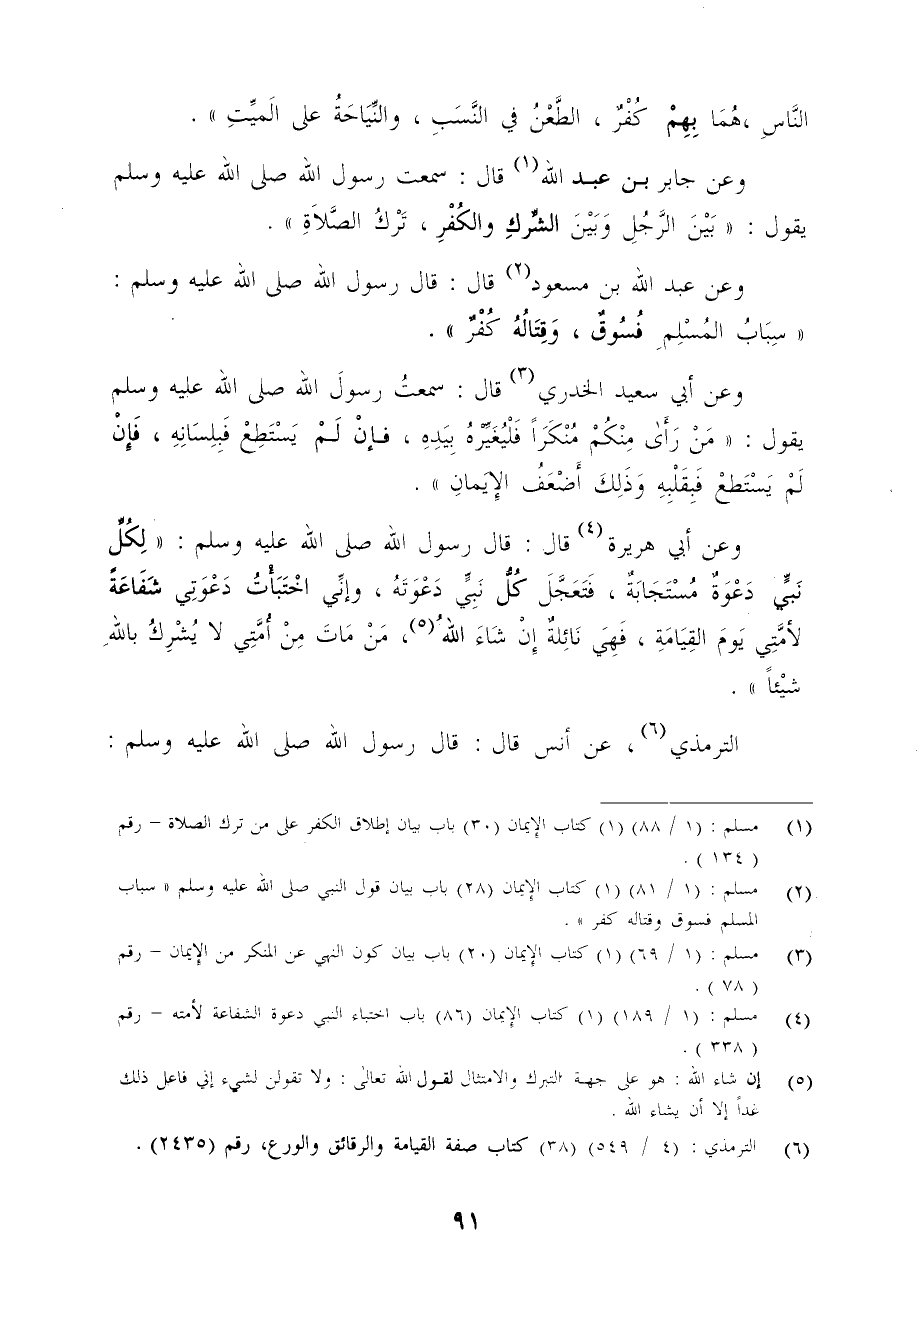 النَّاسِ ،هُمَا بِهِمْ كُفْرٌ ، الطَّعْنُ في النَّسَبِ ، والنِّيَاحَةُ على الَميِّتِ » .
وعن جابر بن عبد الله(١) قال : سمعت رسول الله صلى الله عليه وسلم
يقول : « بَيْنَ الرَّجُلِ وَبَيْنَ الشِّركِ والكُفْرِ ، تَرْكُ الصَّلاَةِ » .
وعن عبد الله بن مسعود(٢) قال : قال رسول الله صلى الله عليه وسلم :
« سِبَابُ المُسْلِمِ فُسُوقٌ ، وَقِتَالُهُ كُفْرٌ » .
وعن أبي سعيد الخدري(٣) قال : سمعتُ رسولَ الله صلى الله عليه وسلم
يقول : « مَنْ رَأَىٰ مِنْكُمْ مُنْكَرَاً فَلْيُغَيِّرْهُ بِيَدِهِ ، فـإنْ لَـمْ يَسْتَطِعْ فَبِلِسَانِهِ ، فَإِنْ
لَمْ يَسْتَطعْ فَبِقَلْبِهِ وَذَلِكَ أَضْعَفُ الإِيَمانِ » .
وعن أبي هريرة(٤) قال : قال رسول الله صلى الله عليه وسلم : « لِكُلِّ
نَبِيٍّ دَعْوَةٌ مُسْتَجَابَةٌ ، فَتَعَجَّلَ كُلُّ نَبِيٍّ دَعْوَتَهُ ، وإنِّي اخْتَبَأْتُ دَعْوَتِي شَفَاعَةً
لأمَّتِي يَومَ القِيَامَةِ ، فَهِيَ نَائِلةٌ إِنْ شَاءَ اللهُ(٥)، مَنْ مَاتَ مِنْ أُمَّتِي لا يُشْرِكُ باللهِ
شيْئاً » .
الترمذي(٦)، عن أنس قال : قال رسول الله صلى الله عليه وسلم :
(١) مسلم : (١ / ٨٨) (١) كتاب الإيمان (٣٠) باب بيان إطلاق الكفر على من ترك الصلاة – رقم
( ١٣٤ ) .
(٢) مسلم : (١ / ٨١) (١) كتاب الإيمان (٢٨) باب بيان قول النبي صلى الله عليه وسلم « سباب
المسلم فسوق وقتاله كفر » .
(٣) مسلم : (١ / ٦٩) (١) كتاب الإيمان (٢٠) باب بيان كون النهي عن المنكر من الإيمان – رقم
( ٧٨ ) .
(٤) مسلم : (١ / ١٨٩) (١) كتاب الإيمان (٨٦) باب اختباء النبي دعوة الشفاعة لأمته – رقم
( ٣٣٨ ) .
(٥) إن شاء الله : هو على جهة التبرك والامتثال لقول الله تعالى : ولا تقولن لشيء إني فاعل ذلك
غداً إلا أن يشاء الله .
(٦) الترمذي : (٤ / ٥٤٩) (٣٨) كتاب صفة القيامة والرقائق والورع، رقم (٢٤٣٥) .
٩١